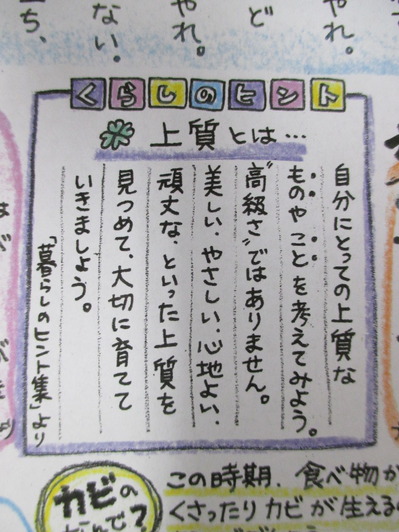 やれ。
ど
ない。
やれ。
ち、
くらしのヒント
上質とは…
自分にとっての上質な
ものやことを考えてみよう。
"高級さ"ではありません。
美しい、やさしい、心地よい、
頑丈な、といった上質を
見つめて、大切に育てて
いきましょう。
「暮らしのヒント集」より
カビの
なんで?
この時期、食べ物が
くさったりカビが生える